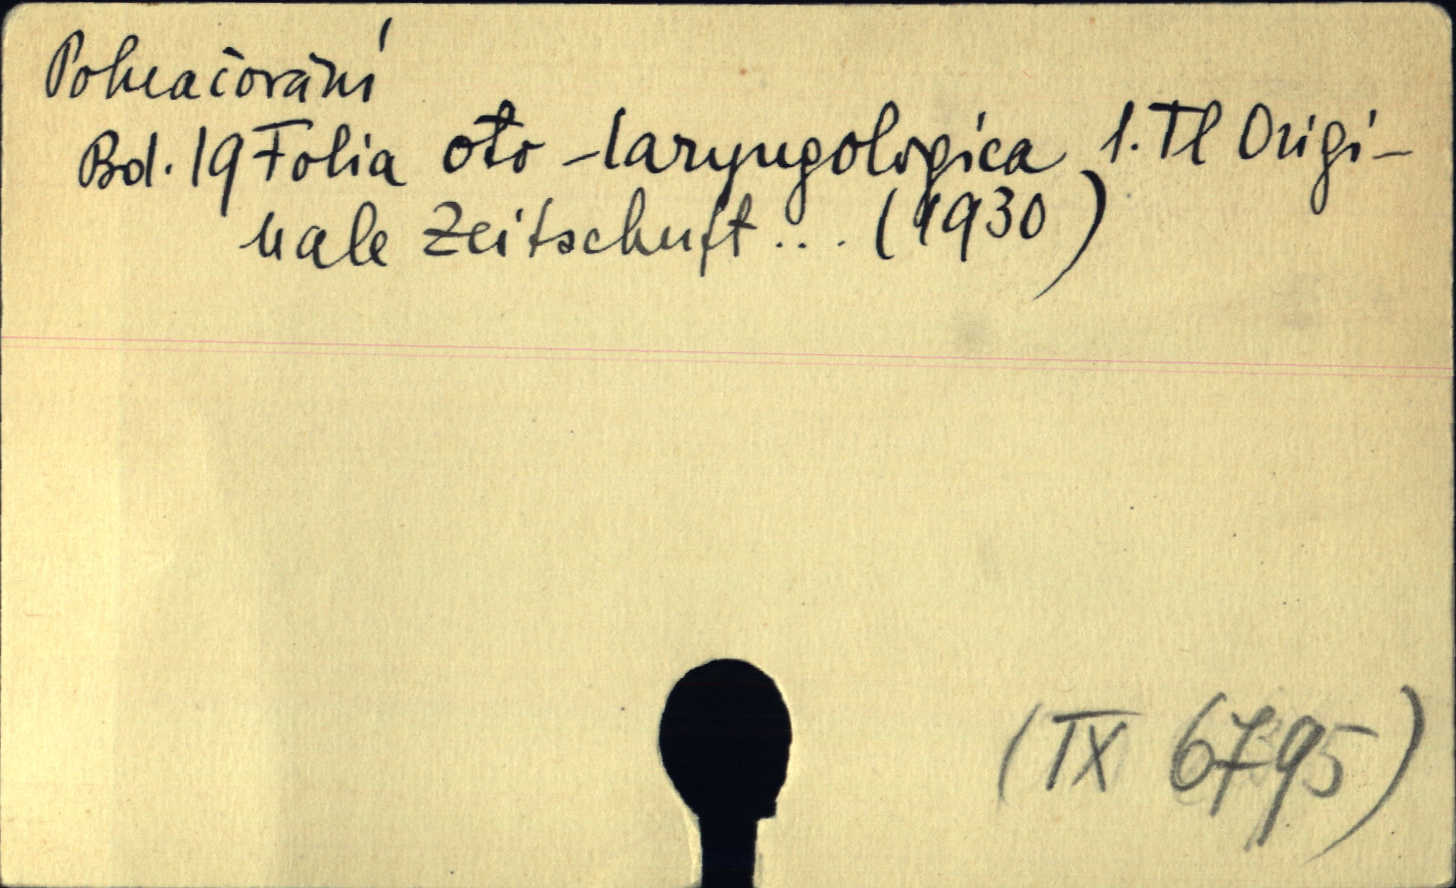 Pokračování
Bd. 19 Folia oto-laryngologica 1. Tl Origi-
nale Zeitschrift ... (1930)
(IX 6795)